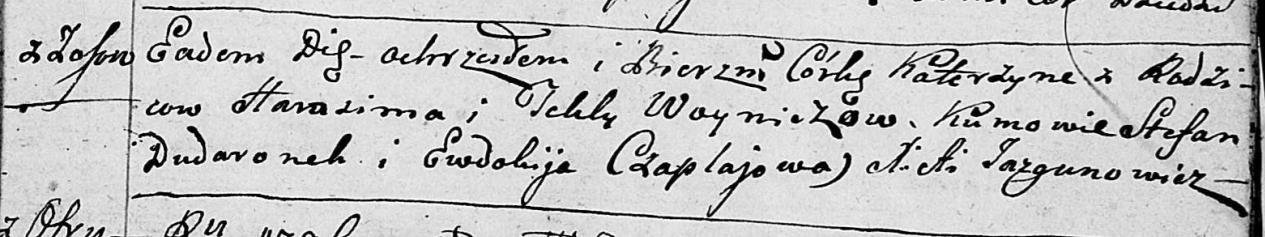 z Zosow
Eadem Die - ochrzciłem i Bierzm Córkę Katerzyne z Rodzi-
cow Harasima i Tekli Woyniczow. Kumowie Stefan
Dudaronek i Ewdokija Czaplajowa) Jazgunowicz